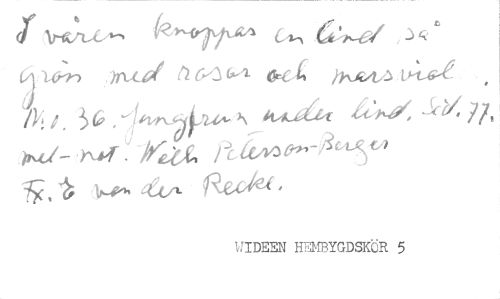 I våren knoppas en lind så
grön med rosor och marsviol.
No. 36. Jungfrun under lind. Sid. 77.
mel-not. Wilh Peterson-Berger
Fx. E von der Recke.
WIDEEN HEMBYGDSKÖR 5